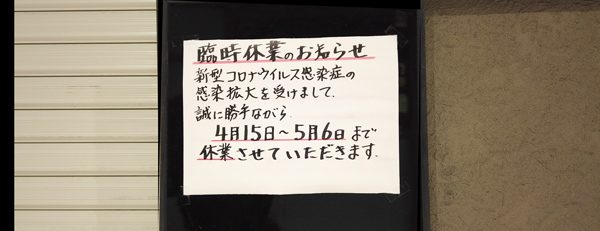 臨時休業のお知らせ
新型コロナウイルス感染症の
感染拡大を受けまして.
誠に勝手ながら.
4月15日～5月6日まで
休業させていただきます.